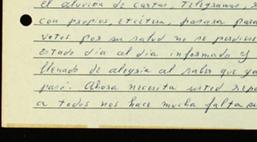 el aluvión de cartas, telegramas,
con propios, etcétera, pasara para
votos por su salud no se perdiese
estado día al día informado y
llenado de alegría al saber que ya
pasó. Ahora necesita usted repo
a todos nos hace mucha falta su